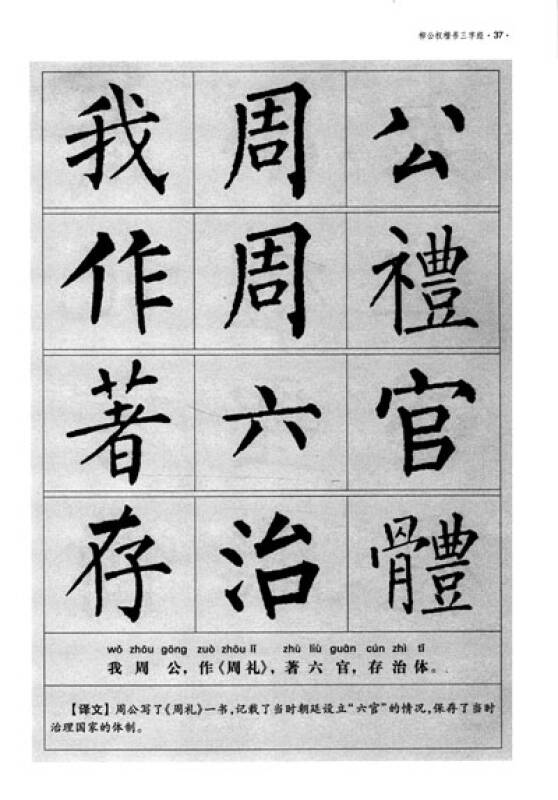 柳公权楷书三字经·37·
我周公
作周禮
著六官
存治體
wǒ zhōu gōng zuò zhōu lǐ zhù liù guān cún zhì tǐ
我周公,作《周礼》,著六官,存治体。
【译文】周公写了《周礼》一书,记载了当时朝廷设立“六官”的情况,保存了当时
治理国家的体制。